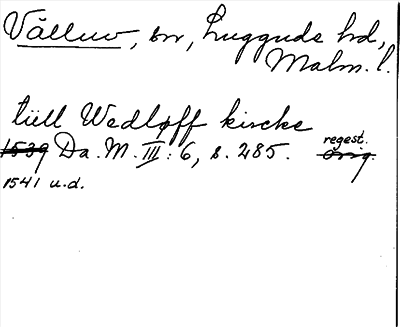 Välluv, sn, Luggude hd,
Malm. l.
till Wedløff kircke
regest.
1539 Da. M. III: 6, s. 285. Orig.
1541 u.d.